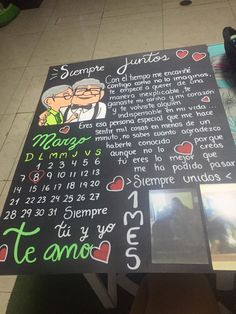 Siempre Juntos
Con el tiempo me encariñé
contigo como no lo imaginas.
te empecé a querer de una
manera inexplicable, te
ganaste mi cariño y mi corazón
y te volviste alguien
indispensable en mi vida ...
Eres esa persona especial que me hace
sentir mil cosas en menos de un
minuto, no sabes cuanto agradezco
haberte conocido
porque
aunque no lo creas
tú eres lo mejor que
me ha podido pasar
Siempre unidos
Marzo
D L M M J V S
1 2 3 4 5 6
7 8 9 10 11 12 13
14 15 16 17 18 19 20
21 22 23 24 25 26 27
28 29 30 31
Siempre
tú y yo
Te amo
1 MES